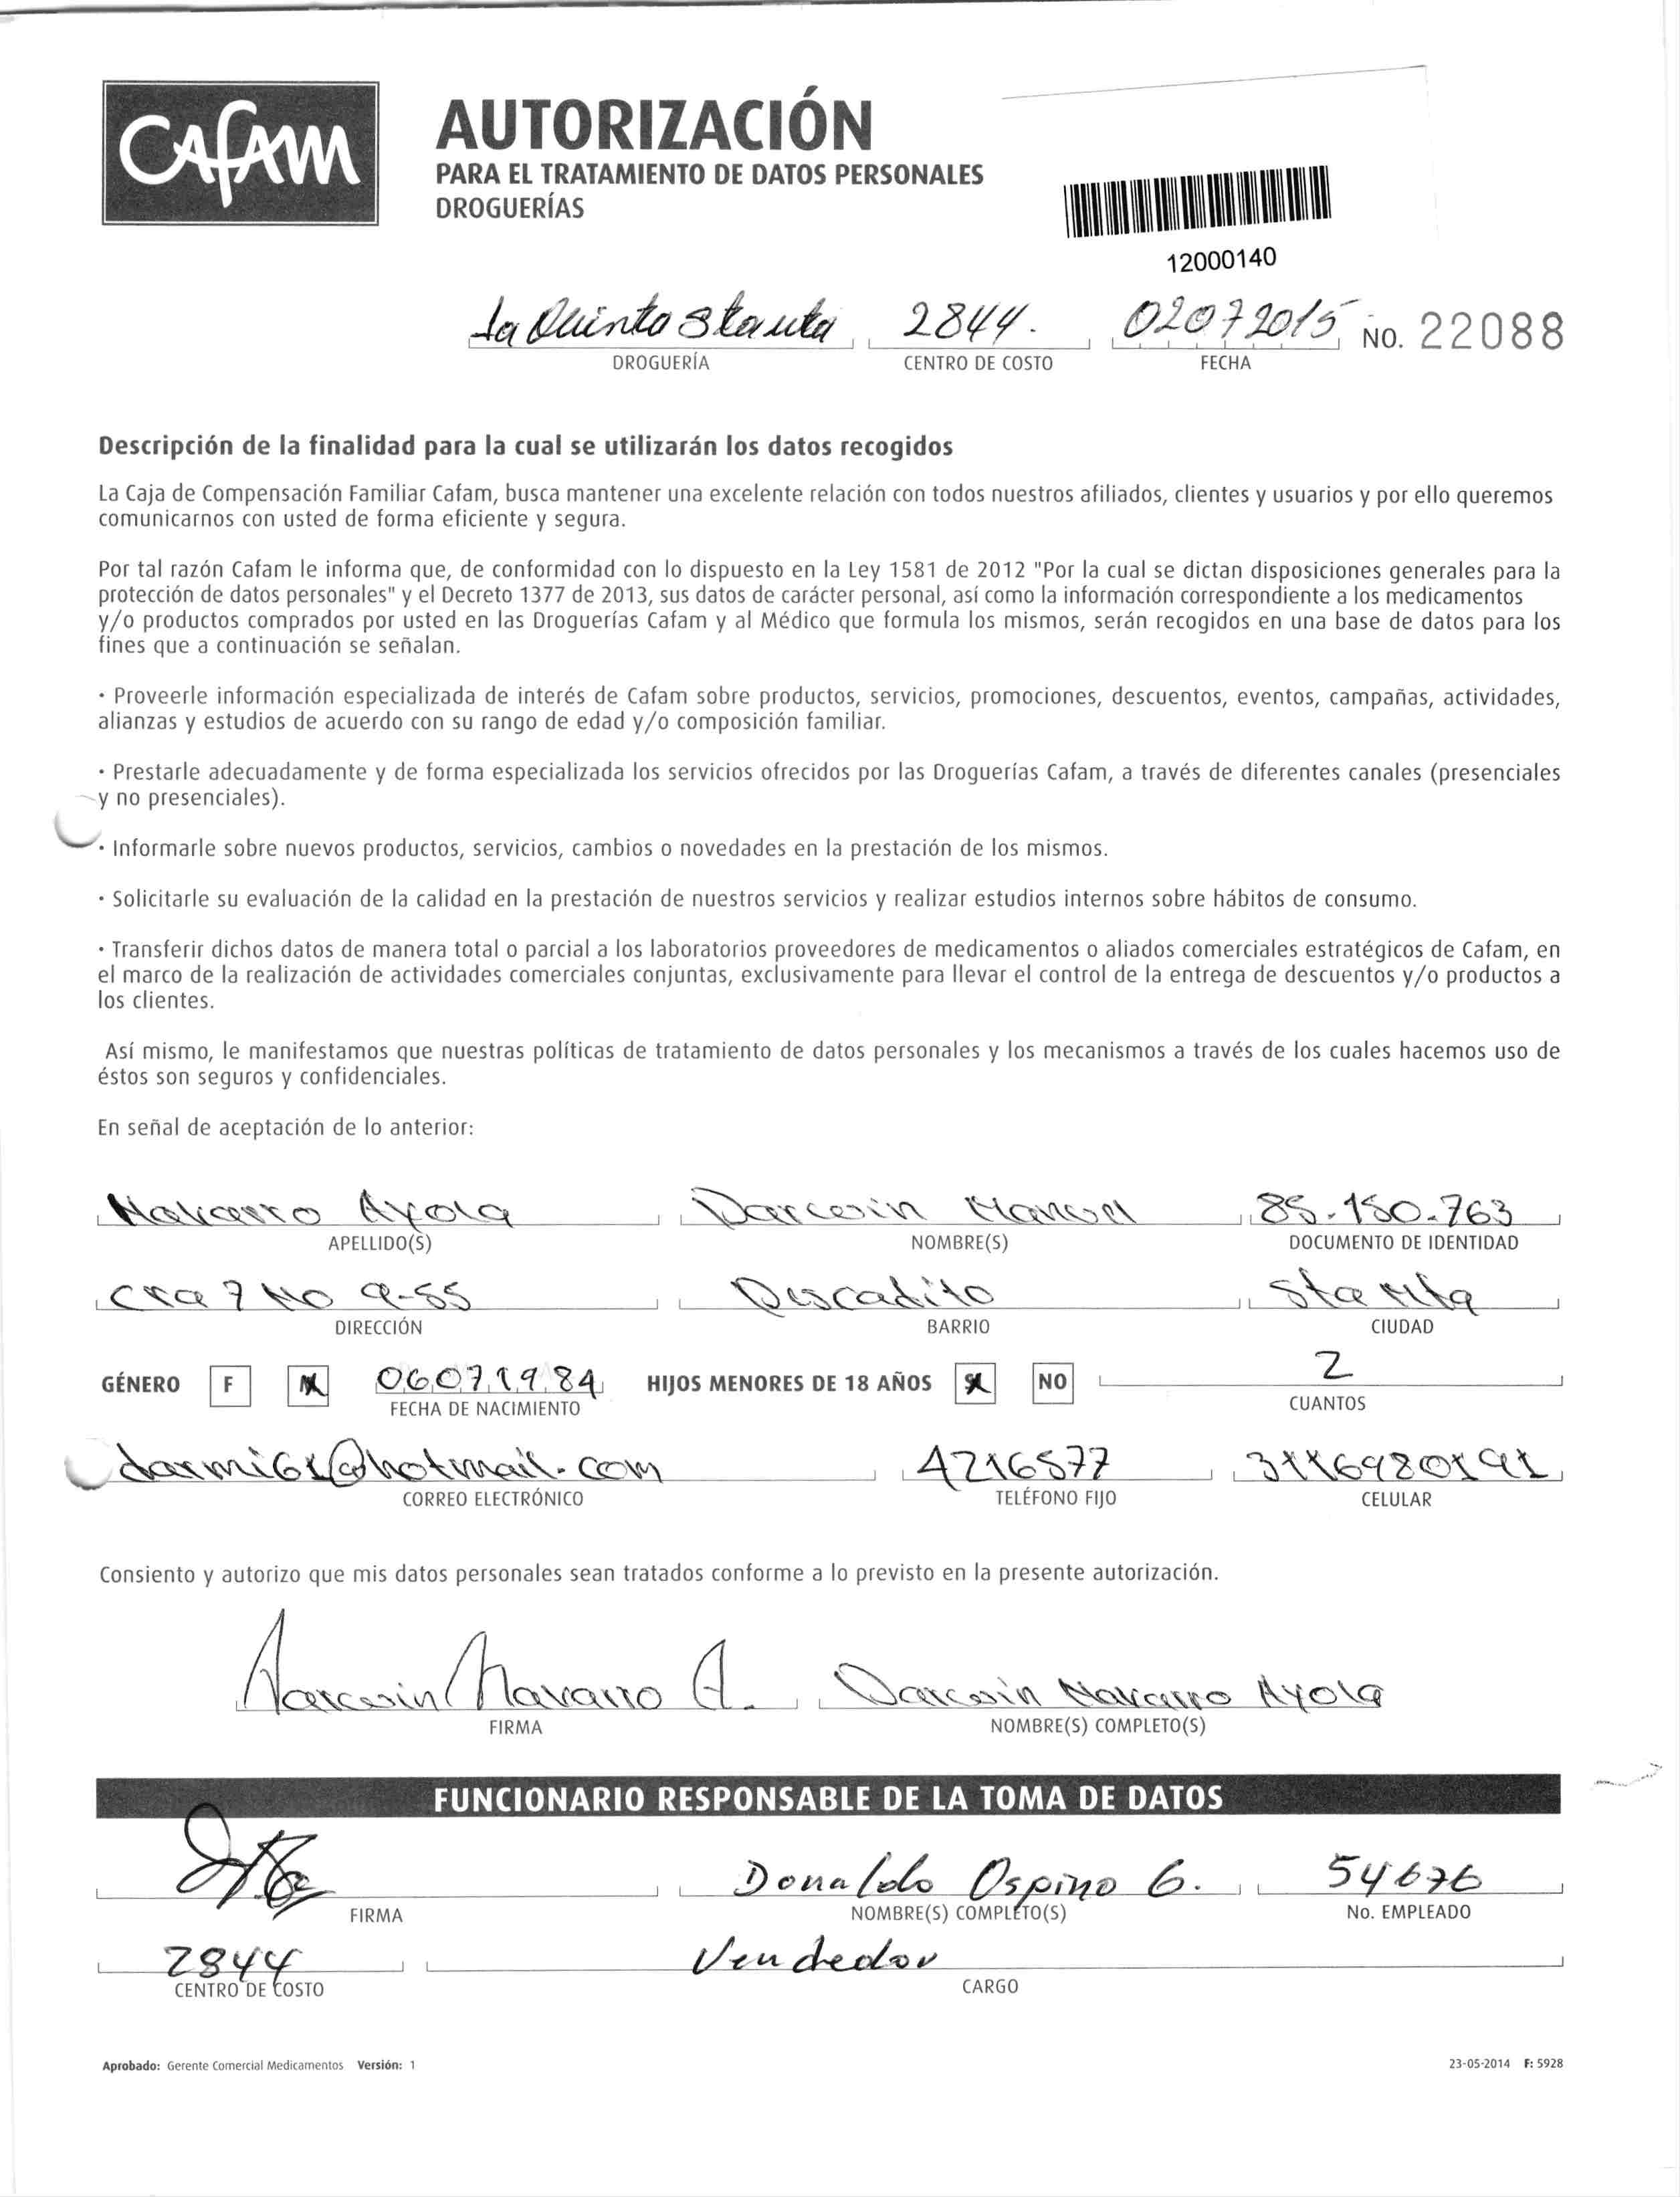 Cafam
AUTORIZACIÓN
PARA EL TRATAMIENTO DE DATOS PERSONALES
DROGUERÍAS
12000140
La Quinta Sta Mta 2844. 02072015 No. 22088
DROGUERÍA CENTRO DE COSTO FECHA
Descripción de la finalidad para la cual se utilizarán los datos recogidos
La Caja de Compensación Familiar Cafam, busca mantener una excelente relación con todos nuestros afiliados, clientes y usuarios y por ello queremos
comunicarnos con usted de forma eficiente y segura.
Por tal razón Cafam le informa que, de conformidad con lo dispuesto en la Ley 1581 de 2012 "Por la cual se dictan disposiciones generales para la
protección de datos personales" y el Decreto 1377 de 2013, sus datos de carácter personal, así como la información correspondiente a los medicamentos
y/o productos comprados por usted en las Droguerías Cafam y al Médico que formula los mismos, serán recogidos en una base de datos para los
fines que a continuación se señalan.
· Proveerle información especializada de interés de Cafam sobre productos, servicios, promociones, descuentos, eventos, campañas, actividades,
alianzas y estudios de acuerdo con su rango de edad y/o composición familiar.
· Prestarle adecuadamente y de forma especializada los servicios ofrecidos por las Droguerías Cafam, a través de diferentes canales (presenciales
y no presenciales).
· Informarle sobre nuevos productos, servicios, cambios o novedades en la prestación de los mismos.
· Solicitarle su evaluación de la calidad en la prestación de nuestros servicios y realizar estudios internos sobre hábitos de consumo.
· Transferir dichos datos de manera total o parcial a los laboratorios proveedores de medicamentos o aliados comerciales estratégicos de Cafam, en
el marco de la realización de actividades comerciales conjuntas, exclusivamente para llevar el control de la entrega de descuentos y/o productos a
los clientes.
Así mismo, le manifestamos que nuestras políticas de tratamiento de datos personales y los mecanismos a través de los cuales hacemos uso de
éstos son seguros y confidenciales.
En señal de aceptación de lo anterior:
Navarro Ayola Darcesin Manuel 85.150.763
APELLIDO(S) NOMBRE(S) DOCUMENTO DE IDENTIDAD
Cra 7 No 9-55 Pescadito Sta Mta
DIRECCIÓN BARRIO CIUDAD
GÉNERO F M 06071984 HIJOS MENORES DE 18 AÑOS SI NO 2
FECHA DE NACIMIENTO CUANTOS
darmi61@hotmail.com 4216577 3116980191
CORREO ELECTRÓNICO TELÉFONO FIJO CELULAR
Consiento y autorizo que mis datos personales sean tratados conforme a lo previsto en la presente autorización.
Darcesin Navarro A. Darcesin Navarro Ayola
FIRMA NOMBRE(S) COMPLETO(S)
FUNCIONARIO RESPONSABLE DE LA TOMA DE DATOS
Donaldo Ospino G. 54676
FIRMA NOMBRE(S) COMPLETO(S) No. EMPLEADO
2844 Vendedor
CENTRO DE COSTO CARGO
Aprobado: Gerente Comercial Medicamentos Versión: 1 23-05-2014 F: 5928